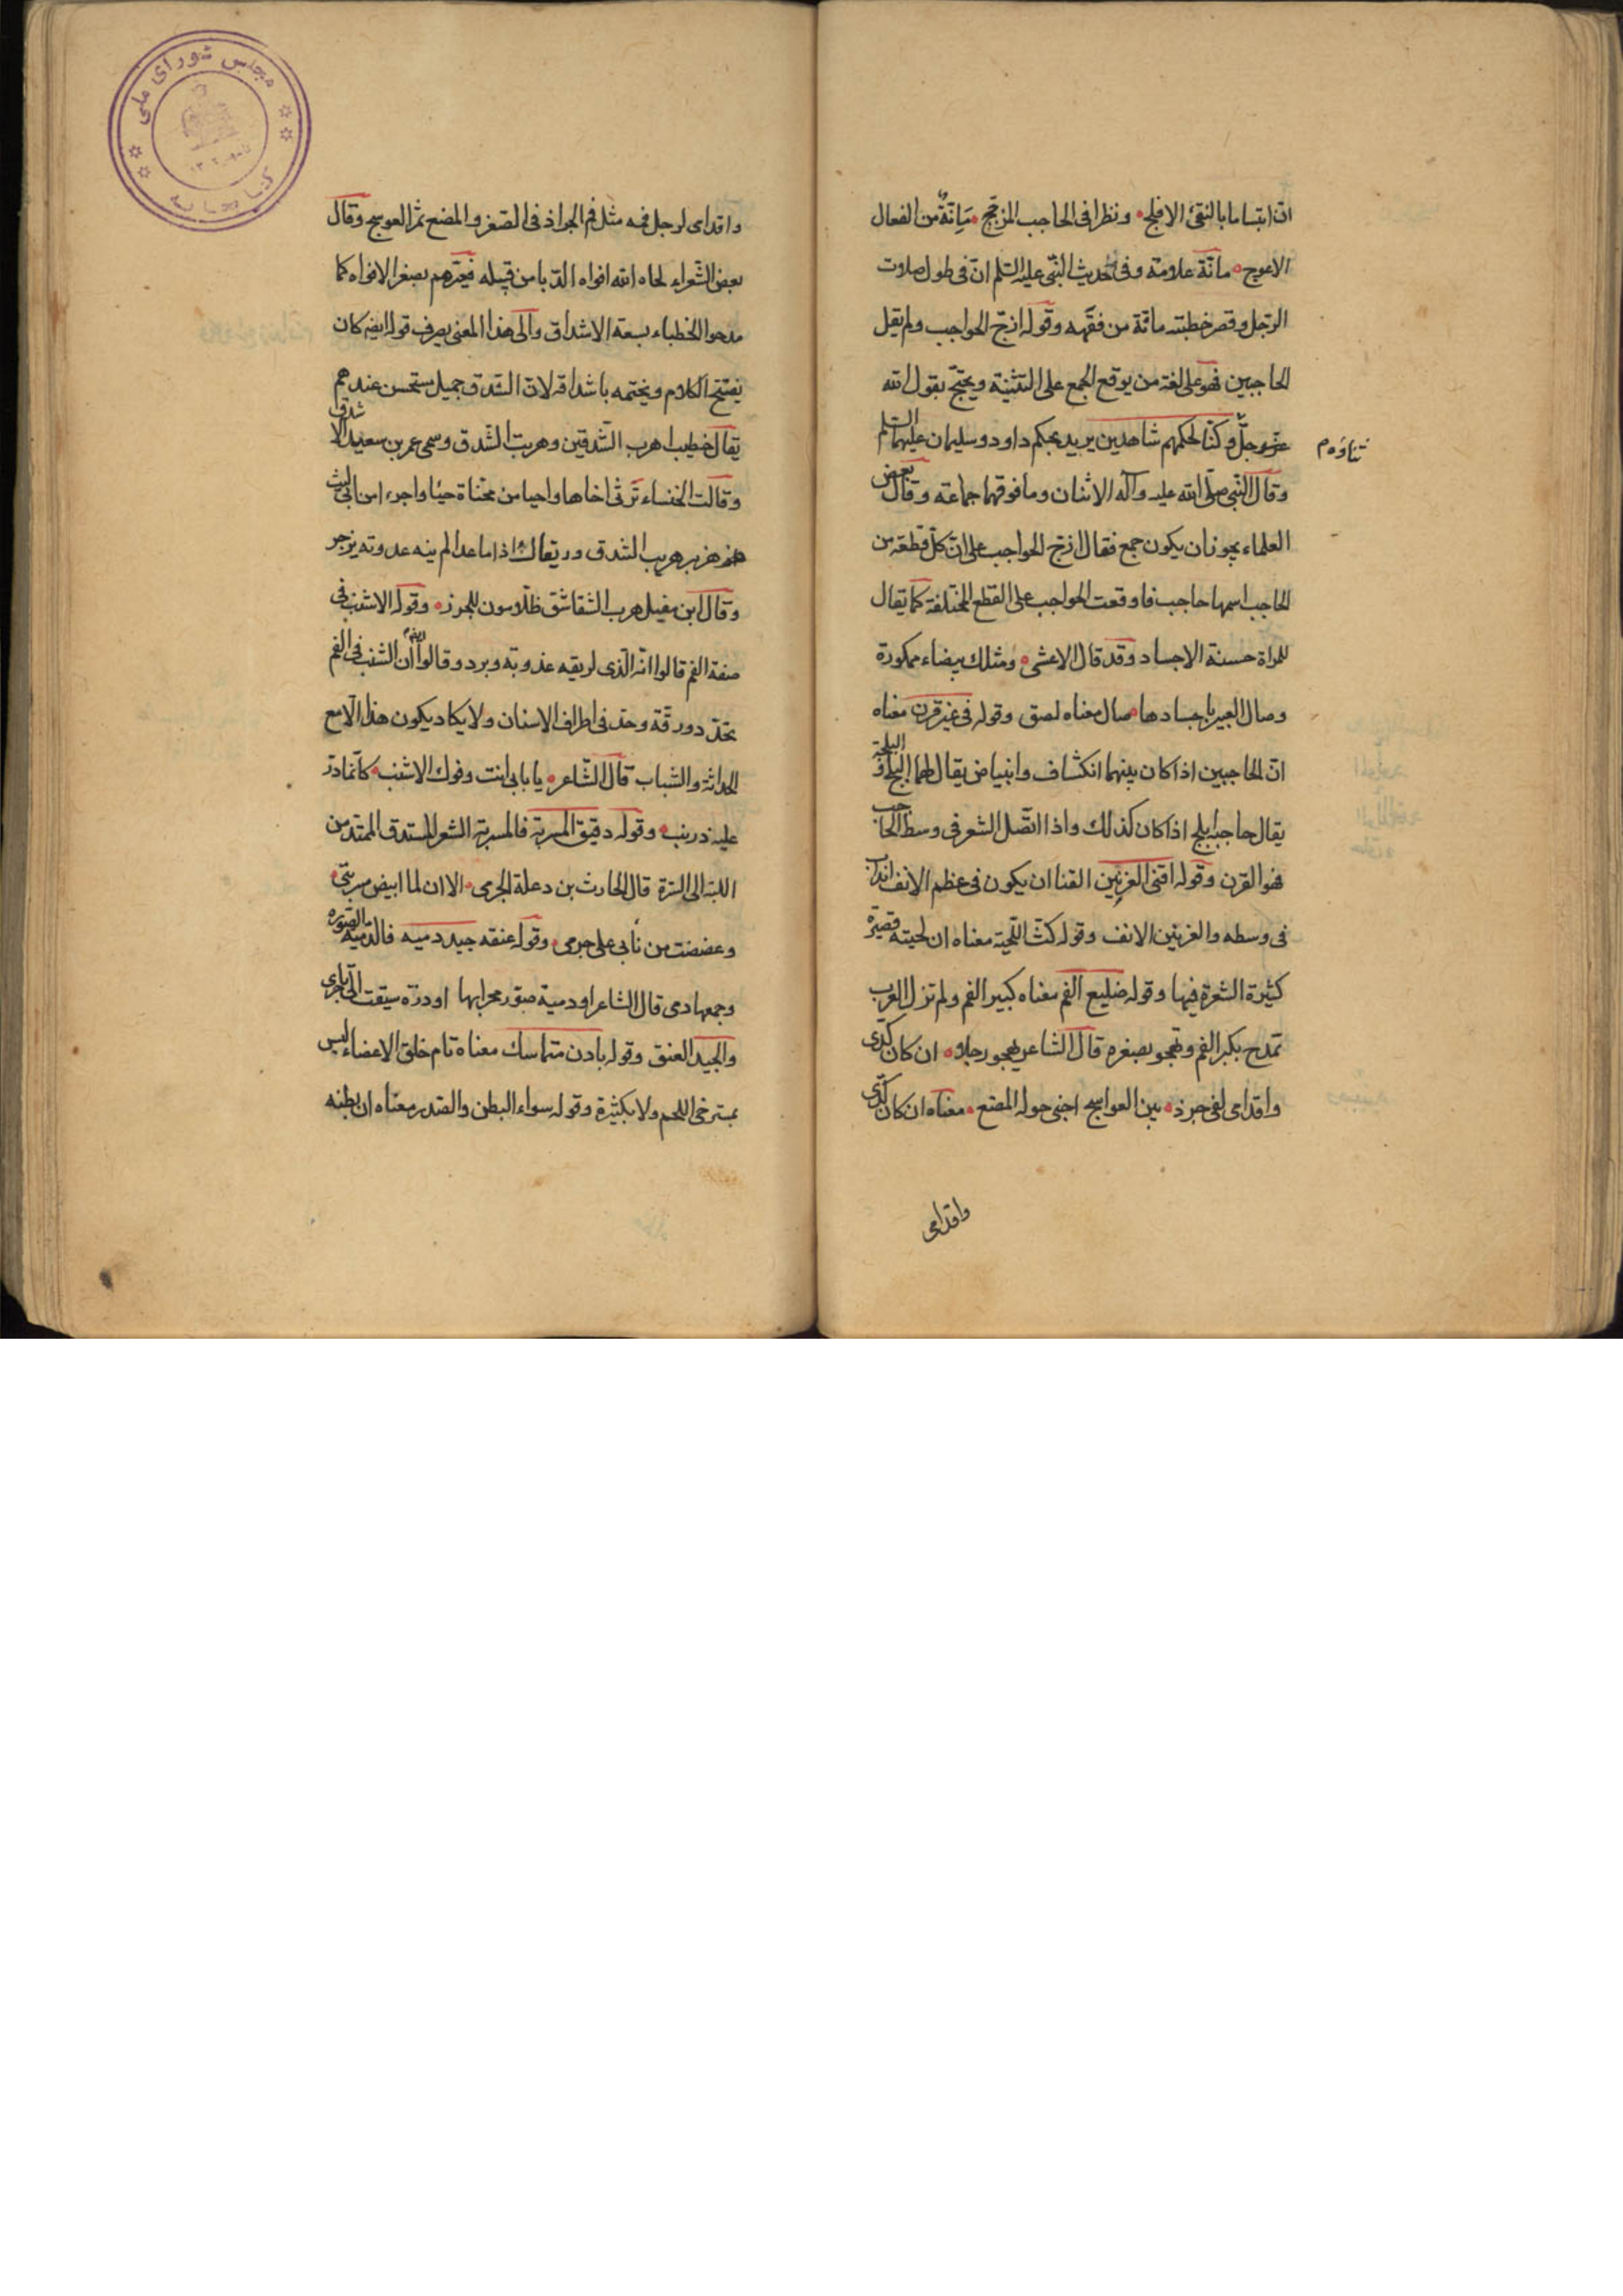 انّ ابتساما بالنقىّ الافلج ونظرا فى الحاجب المزجّج مئنّة من الفعال
الاعوج مائنّة علامة وفى حديث النبّى عليه السّلم انّ فى طول صلوت
الرّجل وقصر خطبته مائنّة من فقهه وقوله ازجّ الحواجب ولم يقل
الحاجبين فهو على لغة من يوقع الجمع على التثنية ويحتجّ بقول الله
عزّوجلّ وكنّا لحكمهم شاهدين يريد بحكم داود وسليمان عليهما السّلم
وقال النّبى صلّى الله عليه وآله الاثنان وما فوقهما جماعة وقال بعض
العلماء يجوز ان يكون جمع فقال ازجّ الحواجب على انّ كلّ قطعة من
الحاجب اسمها حاجب فاوقعت الحواجب على القطع المختلفة كما يقال
للمراة حسنة الاجساد وقد قال الاعشى ومثلك بيضاء ممكورة
وصال العبير باجسادها صال معناه لصق وقوله فى غير قرن معناه
انّ الحاجبين اذا كان بينهما انكشاف وابيياض يقال لهما البلج و البلجة
يقال حاجبه ابلج اذا كان كذلك واذا اتّصل الشعر فى وسط الحاجب
فهو القرن وقوله اقنى العرنين القنا ان يكون فى عظم الانف احداب
فى وسطه والعرنين الانف وقوله كثّ اللّحية معناه ان لحيته قصيرة
كثيرة الشعرة فيها وقوله ضليع الفم معناه كبير الفم ولم تزل العرب
تمدح بكبر الفم وتهجو بصغره قال الشاعر يهجو رجلا ان كان كدّى
واقدامى لفى جرذ بين العواسج اجنى حوله المصع معناه ان كان كدّى
واقدامى
واقداى لرجل فمه مثل فم الجراذ فى الصّغر والمضع ثمر العوسج وقال
بعض الشّعراء لحاه الله افواه الدّبا من قبيله فعيّرهم بصغر الافواه كما
مدحوا الخطباء بسعة الاشداق والى هذا المعنى يصرف قوله ايضه كان
يفتتح الكلام ويختمه باشداقه لانّ الشدق جميل مستحسن عندهم
يقال خطيب اهرب الشّدقين وهريت الشّدق وسمى عمر بن سعيد الا شدق
وقالت الخنساء ترثى اخاها واحيا من مخبّاة حيًا واجرء من ابى ليث
هزبر هريب الشدق ورّيقال اذا ما عدا لم ينه عدوته بزجر
وقال ابن مقبل هرب الشقاشق ظلامون للجزر وقوله الاشنب فى
صفة الفم قالوا انّه الّذى لريقه عذوبة وبرد وقالوا ايضا ان الشنب فى الفم
تحدّد ورقّة وحدّ فى اطراف الاسنان ولا يكاد يكون هذا الّا مع
الحداثة والشباب قال الشّاعر يا بابى انت وفوك الاشنب كانّما ذرّ
عليه ذرينب وقوله دقيق المسربة فالمسربة الشعر المستدق الممتدّ من
اللبّة الى السّرة قال الحارث بن دعلة الجرمى الا ان لما ابيض مسربتى
وعضضت من نابى على جرمى وقوله عنقه جيد دميه فالدّميه الصّوره
وجمعها دمى قال الشاعر او دمية صوّر محرابها او درّة سيقت الى تاجرى
والجيد العنق وقوله بادن متماسك معناه تام خلق الاعضاء ليس
بمسترخى اللحم ولا بكثيرة وقوله سواء البطن والصّدر معناه ان بطنه
مجلس شوراى ملى
كتابخانه